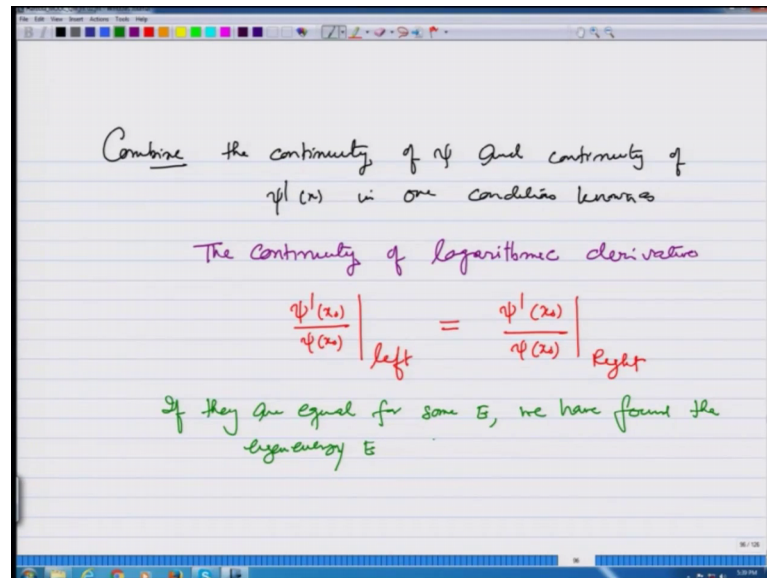 File Edit View Insert Actions Tools Help
Combine the continuity of ψ and continuity of
ψ'(x) in one condition known as
The continuity of logarithmic derivative
ψ'(x₀)/ψ(x₀) |left = ψ'(x₀)/ψ(x₀) |Right
If they are equal for some E, we have found the
eigenenergy E
96
96 / 126
5:39 PM